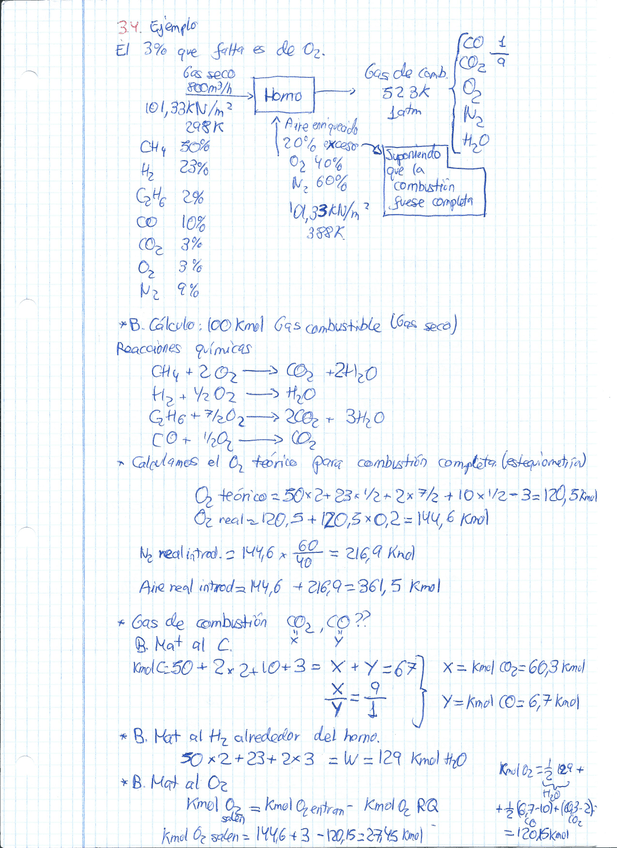 3.4. Ejemplo
El 3% que falta es de O2.
Gas seco
800m³/h
101,33KN/m²
298K
CH4 50%
H2 23%
C2H6 2%
CO 10%
CO2 3%
O2 3%
N2 9%
Horno
Aire enriquecido
20% exceso
O2 40%
N2 60%
101,33KN/m²
388K
Gas de comb.
523K
1atm
CO 1
CO2 9
O2
N2
H2O
Suponiendo
que la
combustión
fuese completa
*B. Cálculo: 100 Kmol Gas combustible (Gas seco)
Reacciones químicas
CH4 + 2O2 → CO2 + 2H2O
H2 + 1/2 O2 → H2O
C2H6 + 7/2 O2 → 2CO2 + 3H2O
CO + 1/2 O2 → CO2
* Calculamos el O2 teórico para combustión completa (estequiometría)
O2 teórico = 50×2 + 23×1/2 + 2×7/2 + 10×1/2 - 3 = 120,5 Kmol
O2 real = 120,5 + 120,5×0,2 = 144,6 Kmol
N2 real introd. = 144,6 × 60/40 = 216,9 Kmol
Aire real introd = 144,6 + 216,9 = 361,5 Kmol
* Gas de combustión CO2, CO??
X Y
B. Mat al C.
Kmol C = 50 + 2×2 + 10 + 3 = X + Y = 67
X/Y = 9/1
X = Kmol CO2 = 60,3 Kmol
Y = Kmol CO = 6,7 Kmol
* B. Mat al H2 alrededor del horno.
50×2 + 23 + 2×3 = W = 129 Kmol H2O
* B. Mat al O2
Kmol O2 salen = Kmol O2 entran - Kmol O2 RQ
Kmol O2 salen = 144,6 + 3 - 120,15 = 27,45 Kmol
Kmol O2 = 1/2 129 +
H2O
+ 1/2 (6,7-10) + (60,3-2)
CO CO2
= 120,15 Kmol